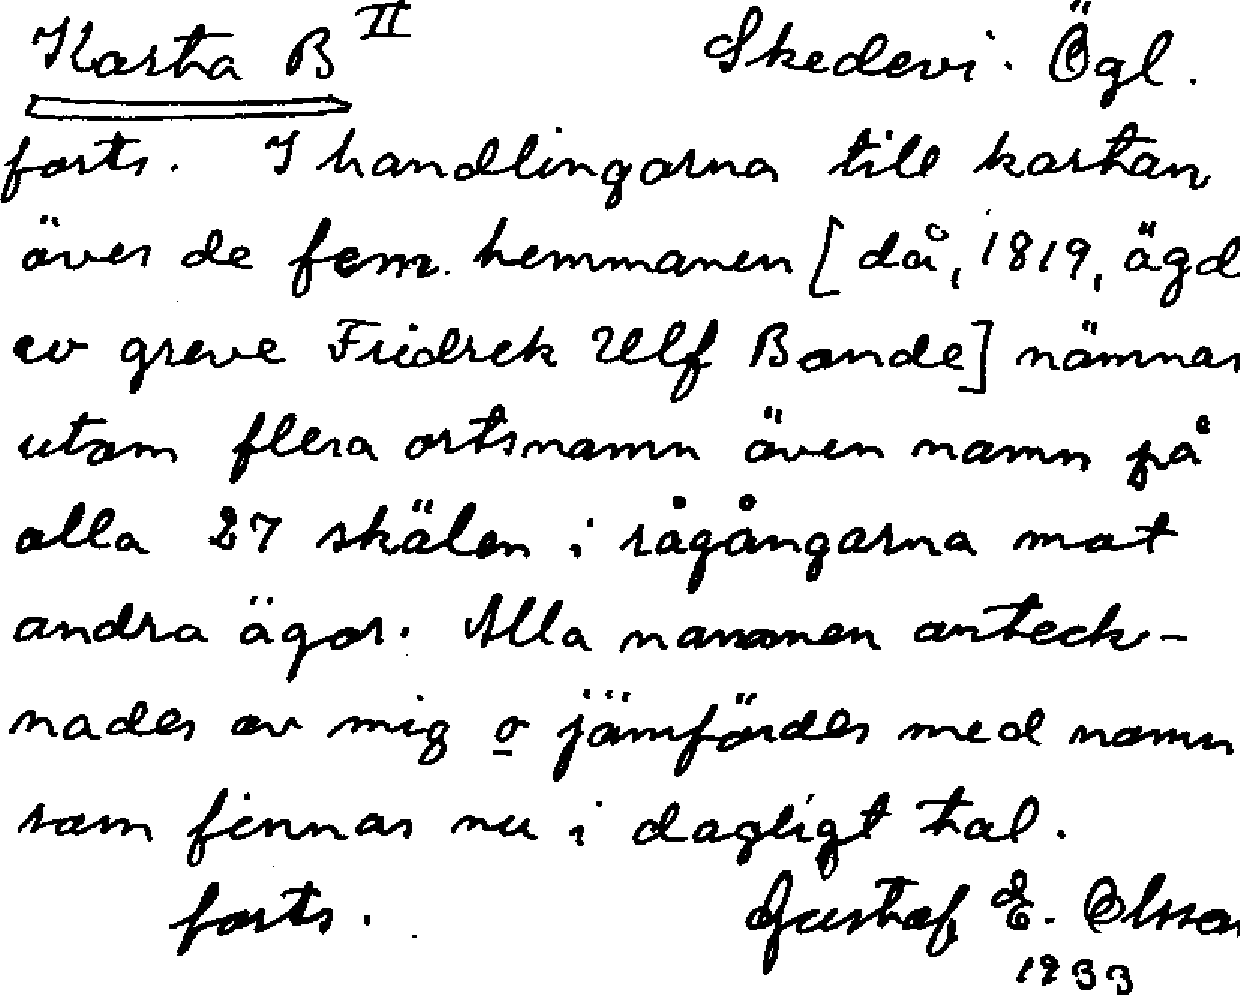 Karta B II Skedevi. Ögl.
forts. I handlingarna till kartan
över de fem. hemmanen [då, 1819, ägd
av greve Fridrek Ulf Bonde] nämnas
utom flera ortsnamn även namn på
alla 27 skälen i rågångarna mot
andra ägor. Alla namnen anteck-
nades av mig o jämfördes med namn
som finnas nu i dagligt tal.
forts. Gustaf E. Olsson
1933